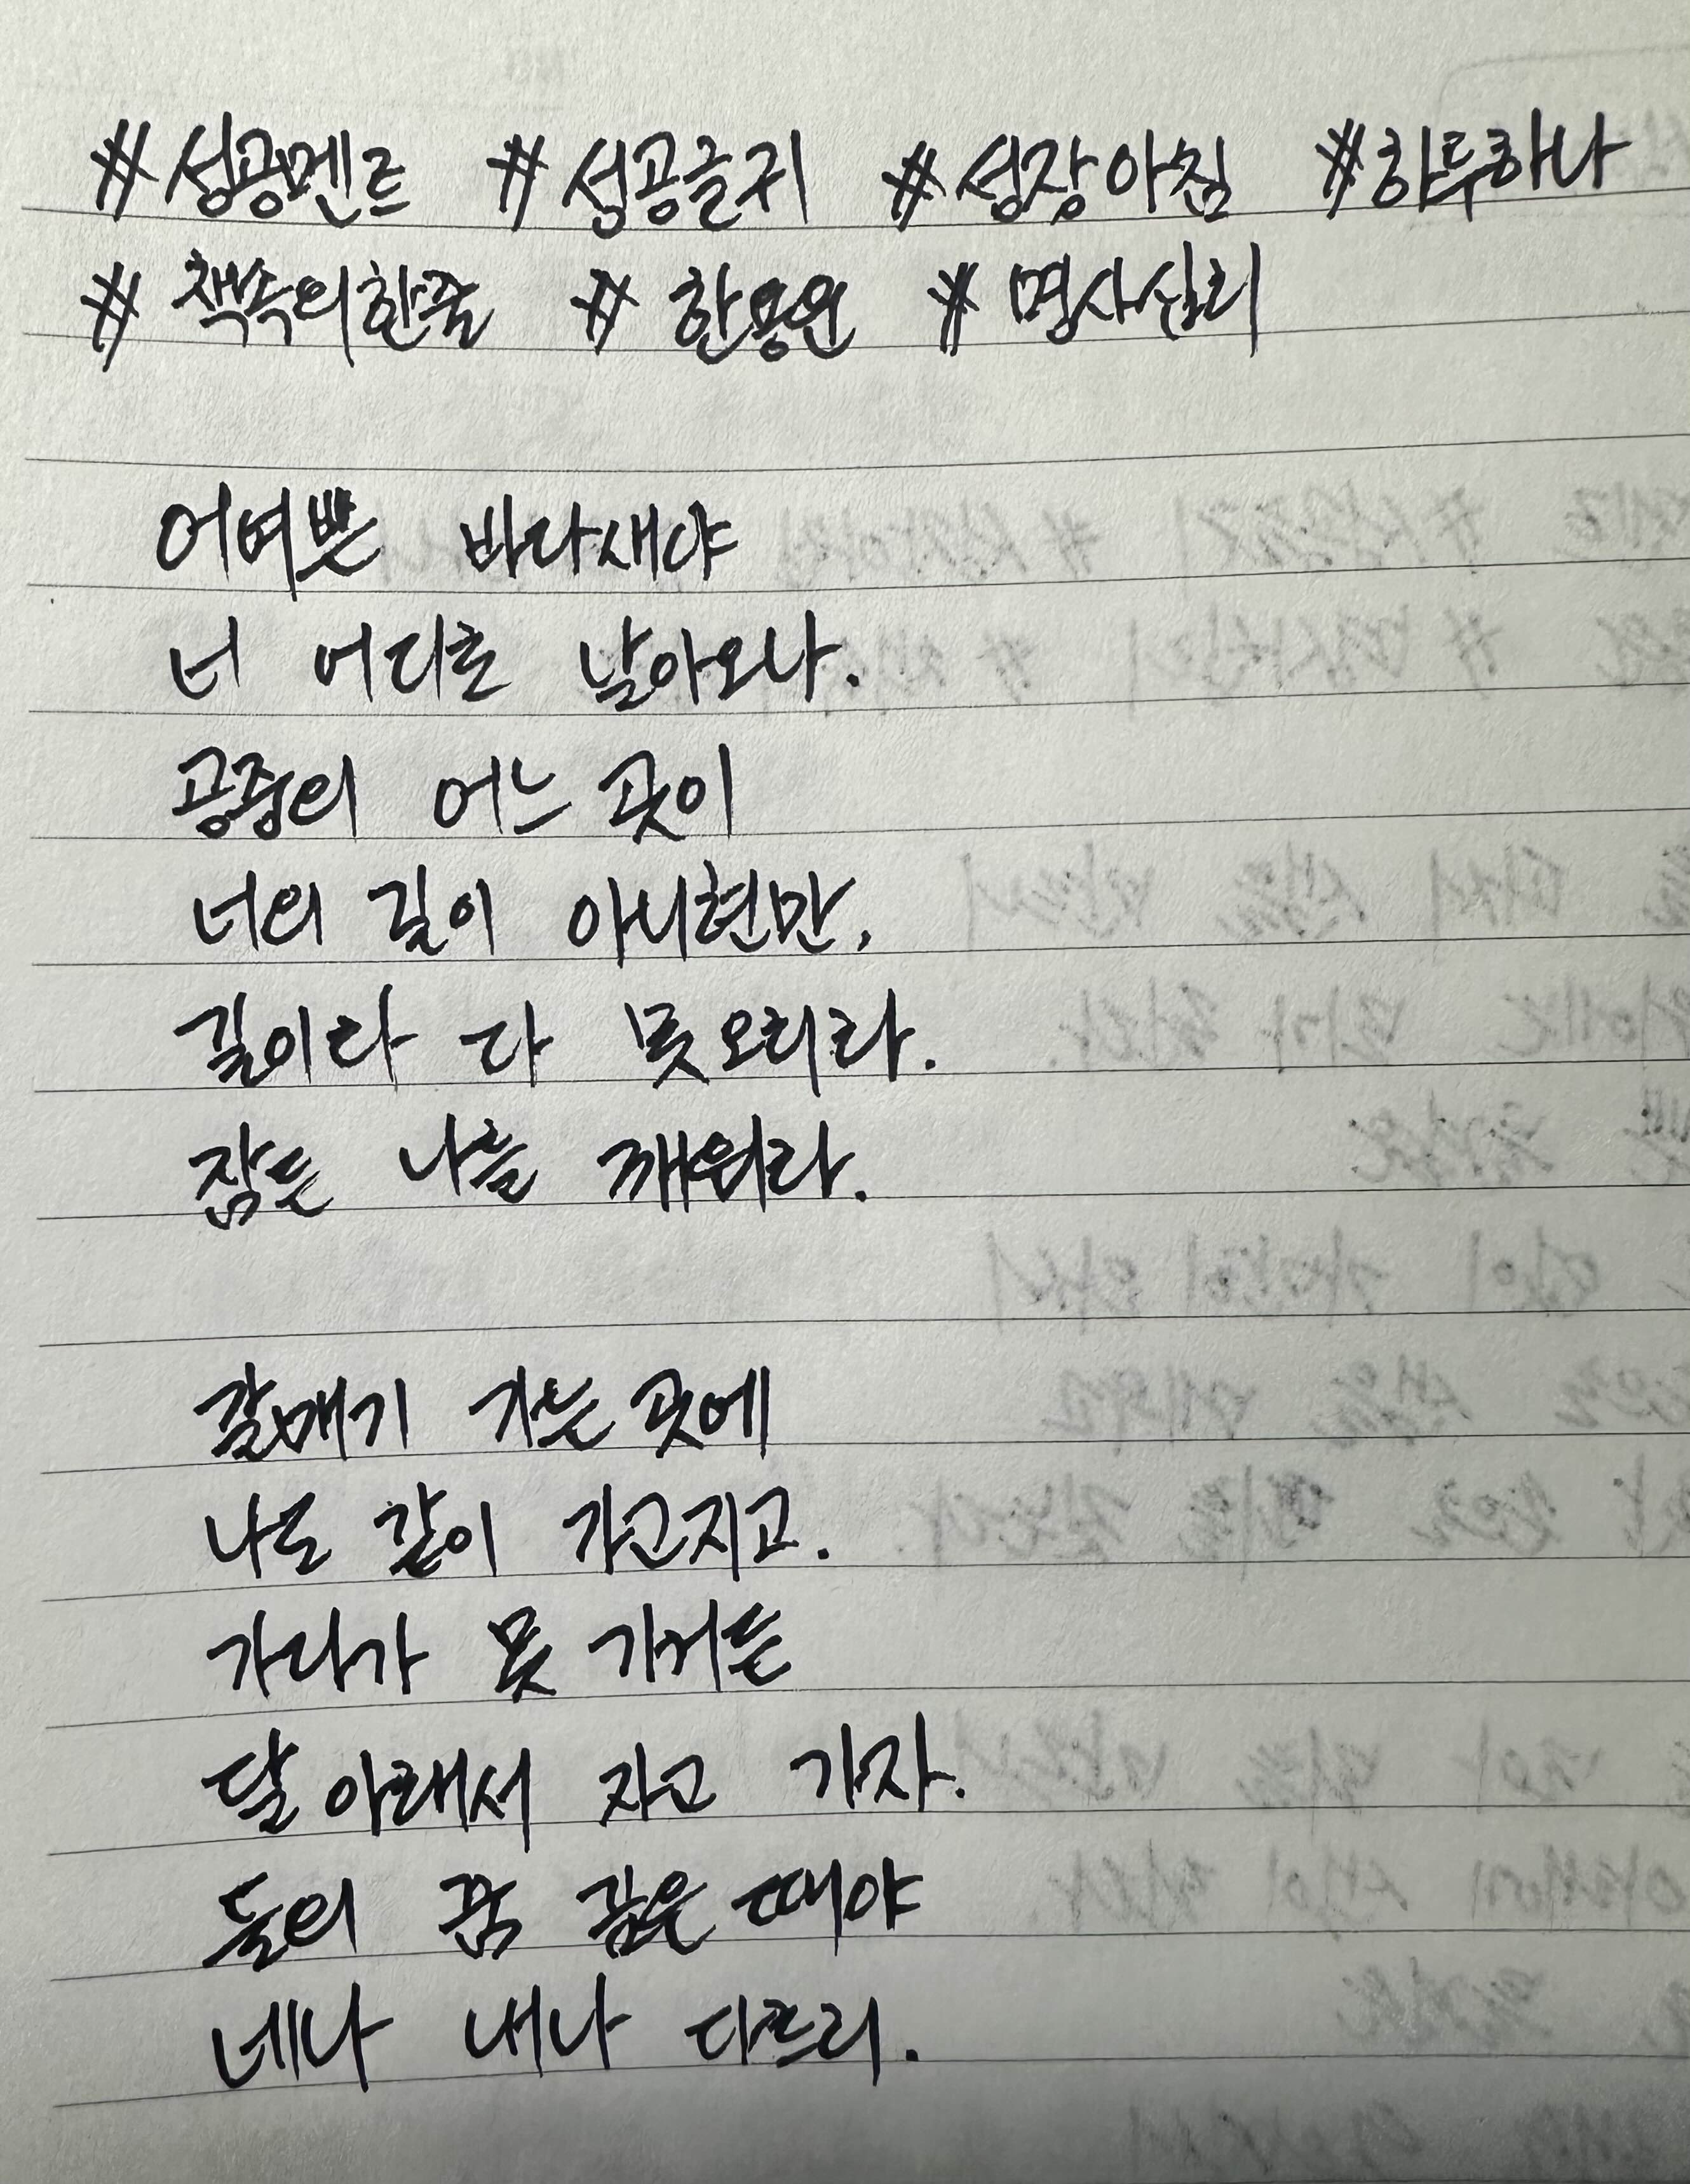 #성공멘트 #성공글귀 #성장아침 #하루하나
#책속의한줄 #한용운 #명사십리
어여쁜 바다새야
너 어디로 날아오나.
공중의 어느 곳이
너의 길이 아니현만,
길이라 다 못오리라.
잠든 나를 깨워라.
갈매기 가는 곳에
나도 같이 가고지고.
가다가 못 가거든
달 아래서 자고 가자.
둘의 꿈 깊은 때야
네나 내나 다르리.